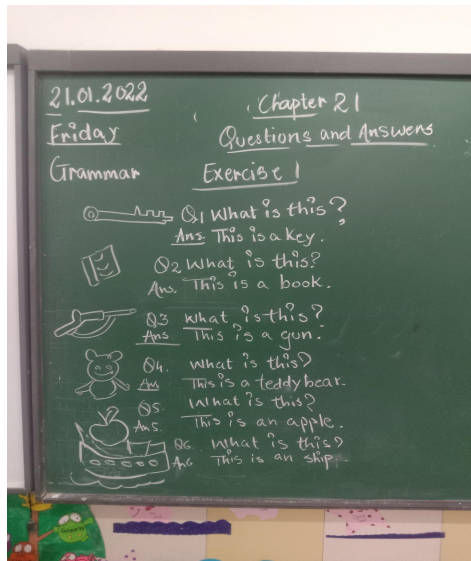 21.01.2022
Chapter 21
Friday
Questions and Answers
Grammar
Exercise 1
Q1 What is this?
Ans. This is a key.
Q2 What is this?
Ans. This is a book.
Q3 What is this?
Ans This is a gun.
Q4. What is this?
Ans This is a teddy bear.
Q5. What is this?
Ans. This is an apple.
Q6. What is this?
Ans This is an ship.